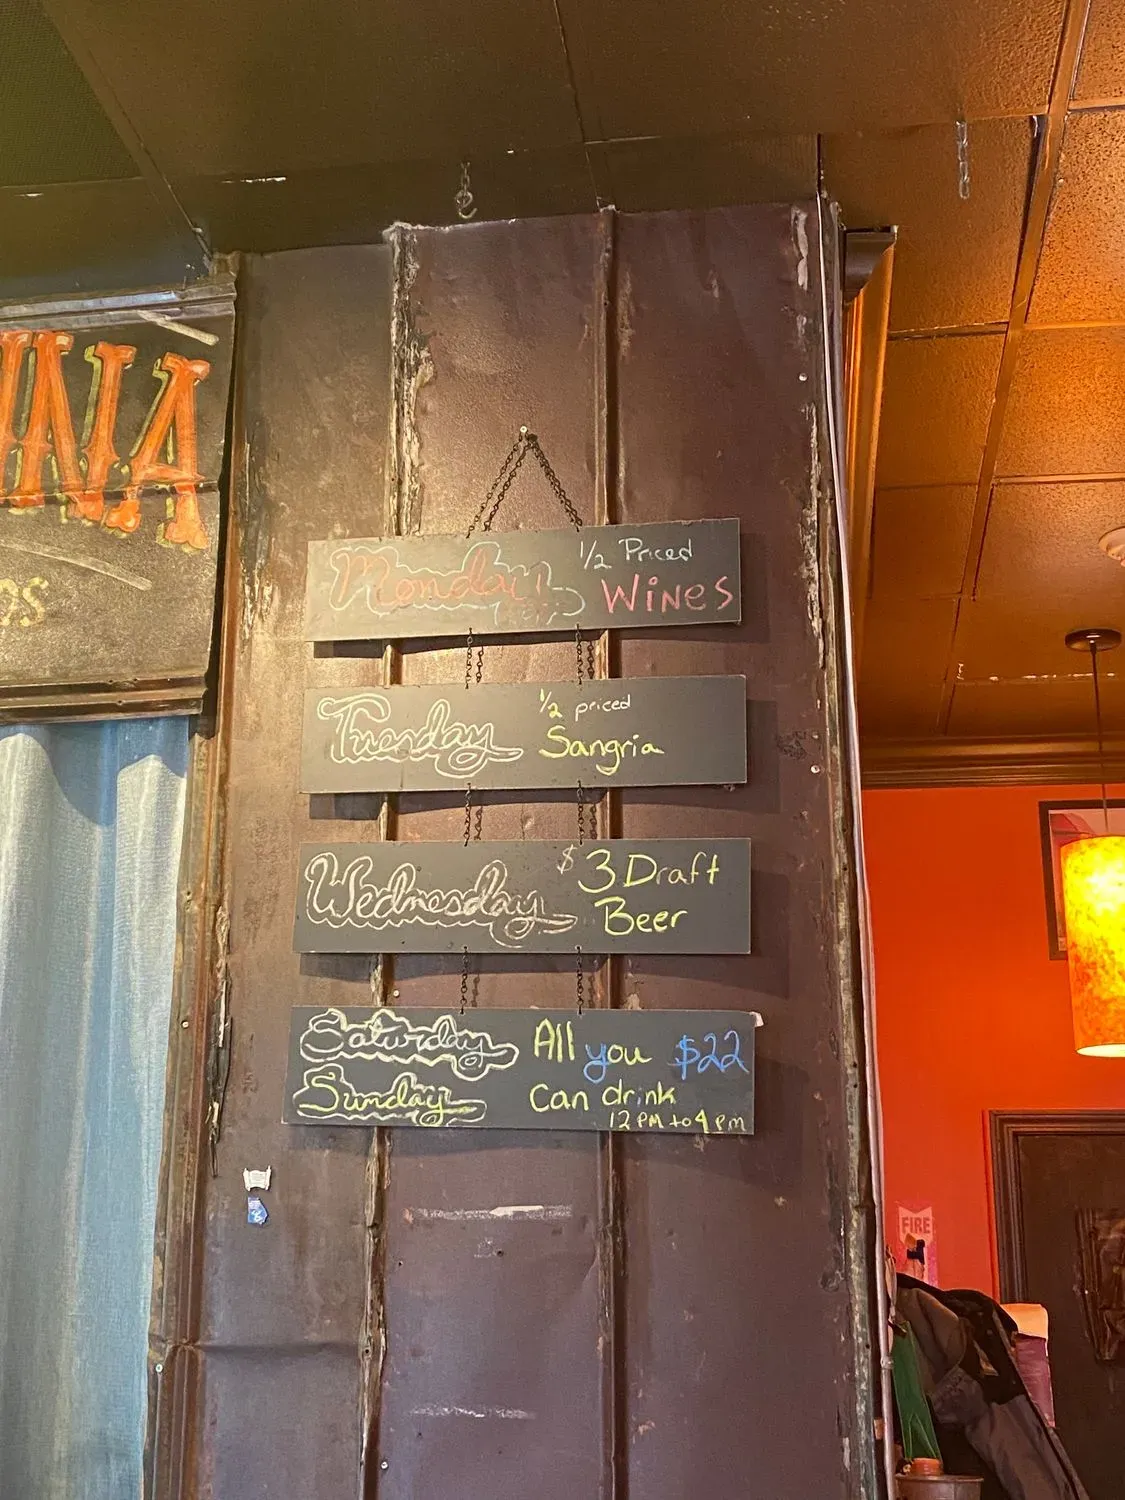 Monday 1/2 Priced
WINES
Tuesday 1/2 priced
Sangria
Wednesday $3 Draft
Beer
Saturday All you $22
Sunday Can drink
12 PM to 4 PM
FIRE